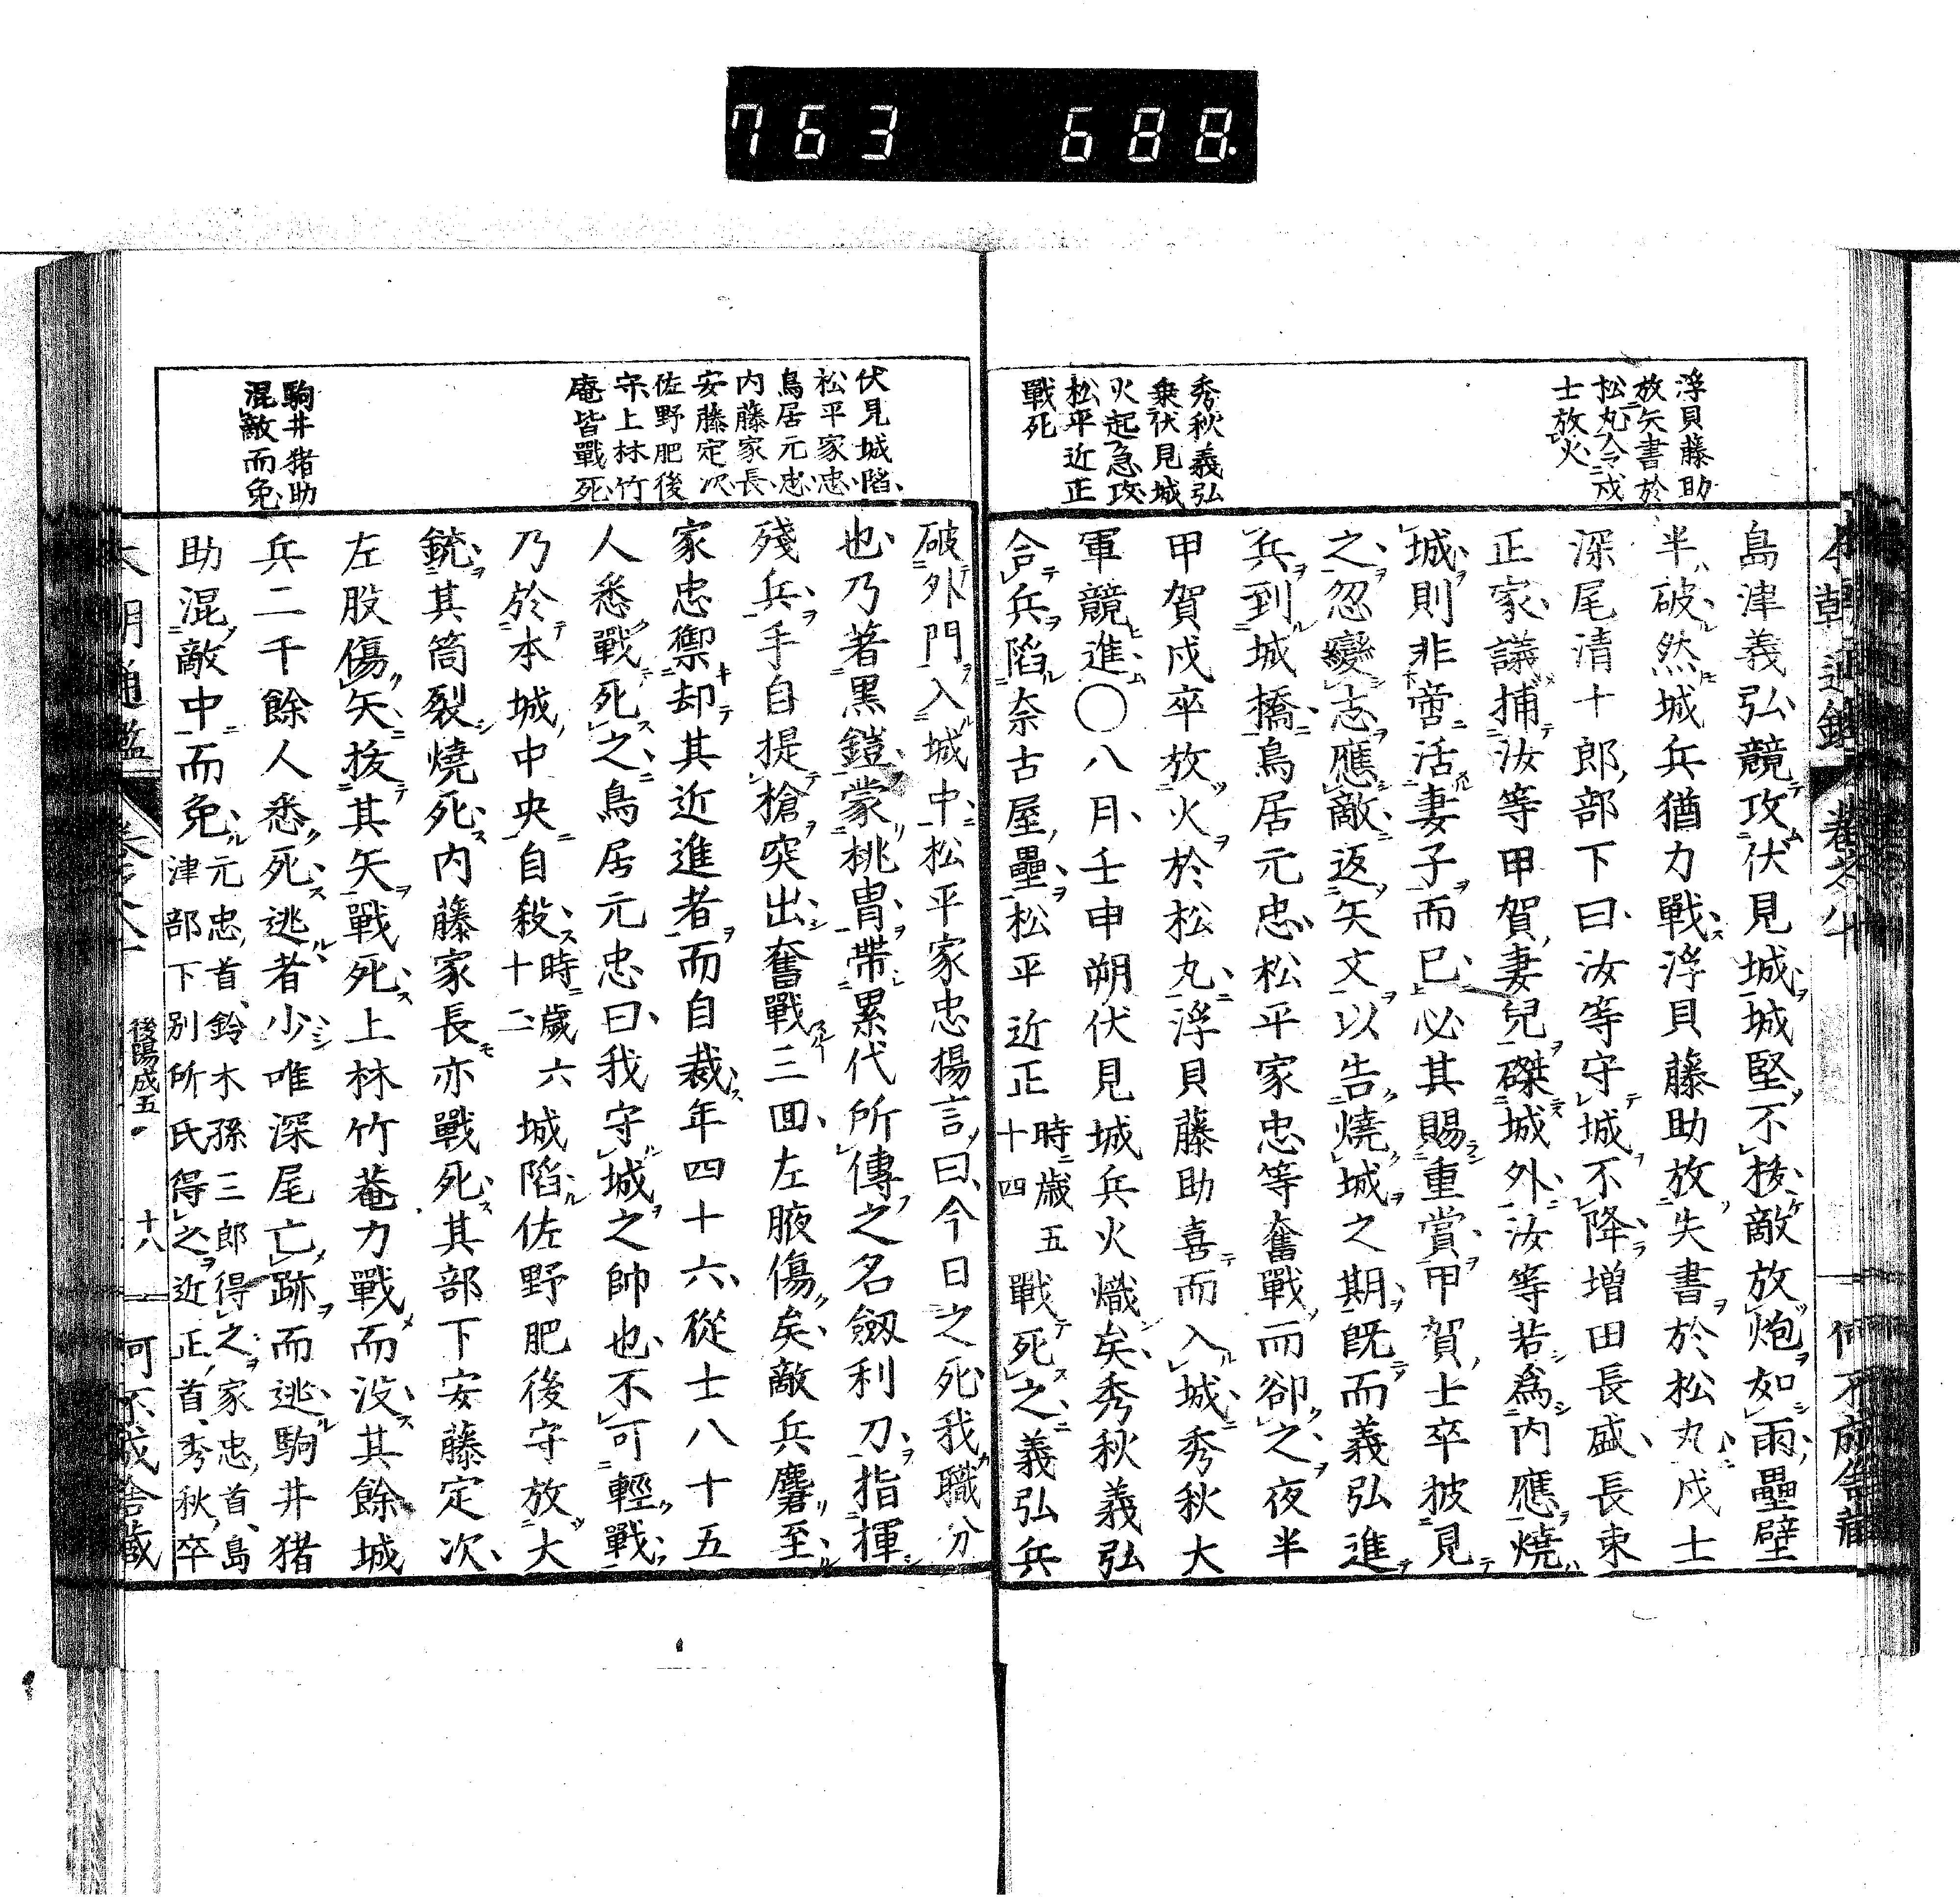 763 688.
浮貝藤助
放矢書於
松丸令戍
士放火
秀秋義弘
乘伏見城
火起急攻
松平近正
戰死
卷之八十
島津義弘競攻伏見城城堅不拔敵放炮如雨壘壁
半破然城兵猶力戰浮貝藤助放矢書於松丸戍士
深尾清十郎部下曰汝等守城不降增田長盛長束
正家議捕汝等甲賀妻兒磔城外汝等若爲内應燒
城則非啻活妻子而已必其賜重賞甲賀士卒披見
之忽變志應敵返矢文以告燒城之期既而義弘進
兵到城橋鳥居元忠松平家忠等奮戰而卻之夜半
甲賀戍卒放火於松丸浮貝藤助喜而入城秀秋大
軍競進〇八月壬申朔伏見城兵火熾矣秀秋義弘
合兵陷奈古屋壘松平近正時歳五十四戰死之義弘兵
伏見城陷
松平家忠
鳥居元忠
内藤家長
安藤定次
佐野肥後
守上林竹
庵皆戰死
駒井猪助
混敵而免
破外門入城中松平家忠揚言曰今日之死我職分
也乃著黑鎧蒙桃冑帶累代所傳之名劔利刀指揮
殘兵手自提槍突出奮戰三回左腋傷矣敵兵麕至
家忠禦却其近進者而自裁年四十六從士八十五
人悉戰死之鳥居元忠曰我守城之帥也不可輕戰
乃於本城中央自殺時歳六十二城陷佐野肥後守放大
銃其筒裂燒死内藤家長亦戰死其部下安藤定次
左股傷矢拔其矢戰死上林竹菴力戰而没其餘城
兵二千餘人悉死逃者少唯深尾亡跡而逃駒井猪
助混敵中而免元忠首鈴木孫三郎得之家忠首島
津部下別所氏得之近正首秀秋卒
後陽成五
十八